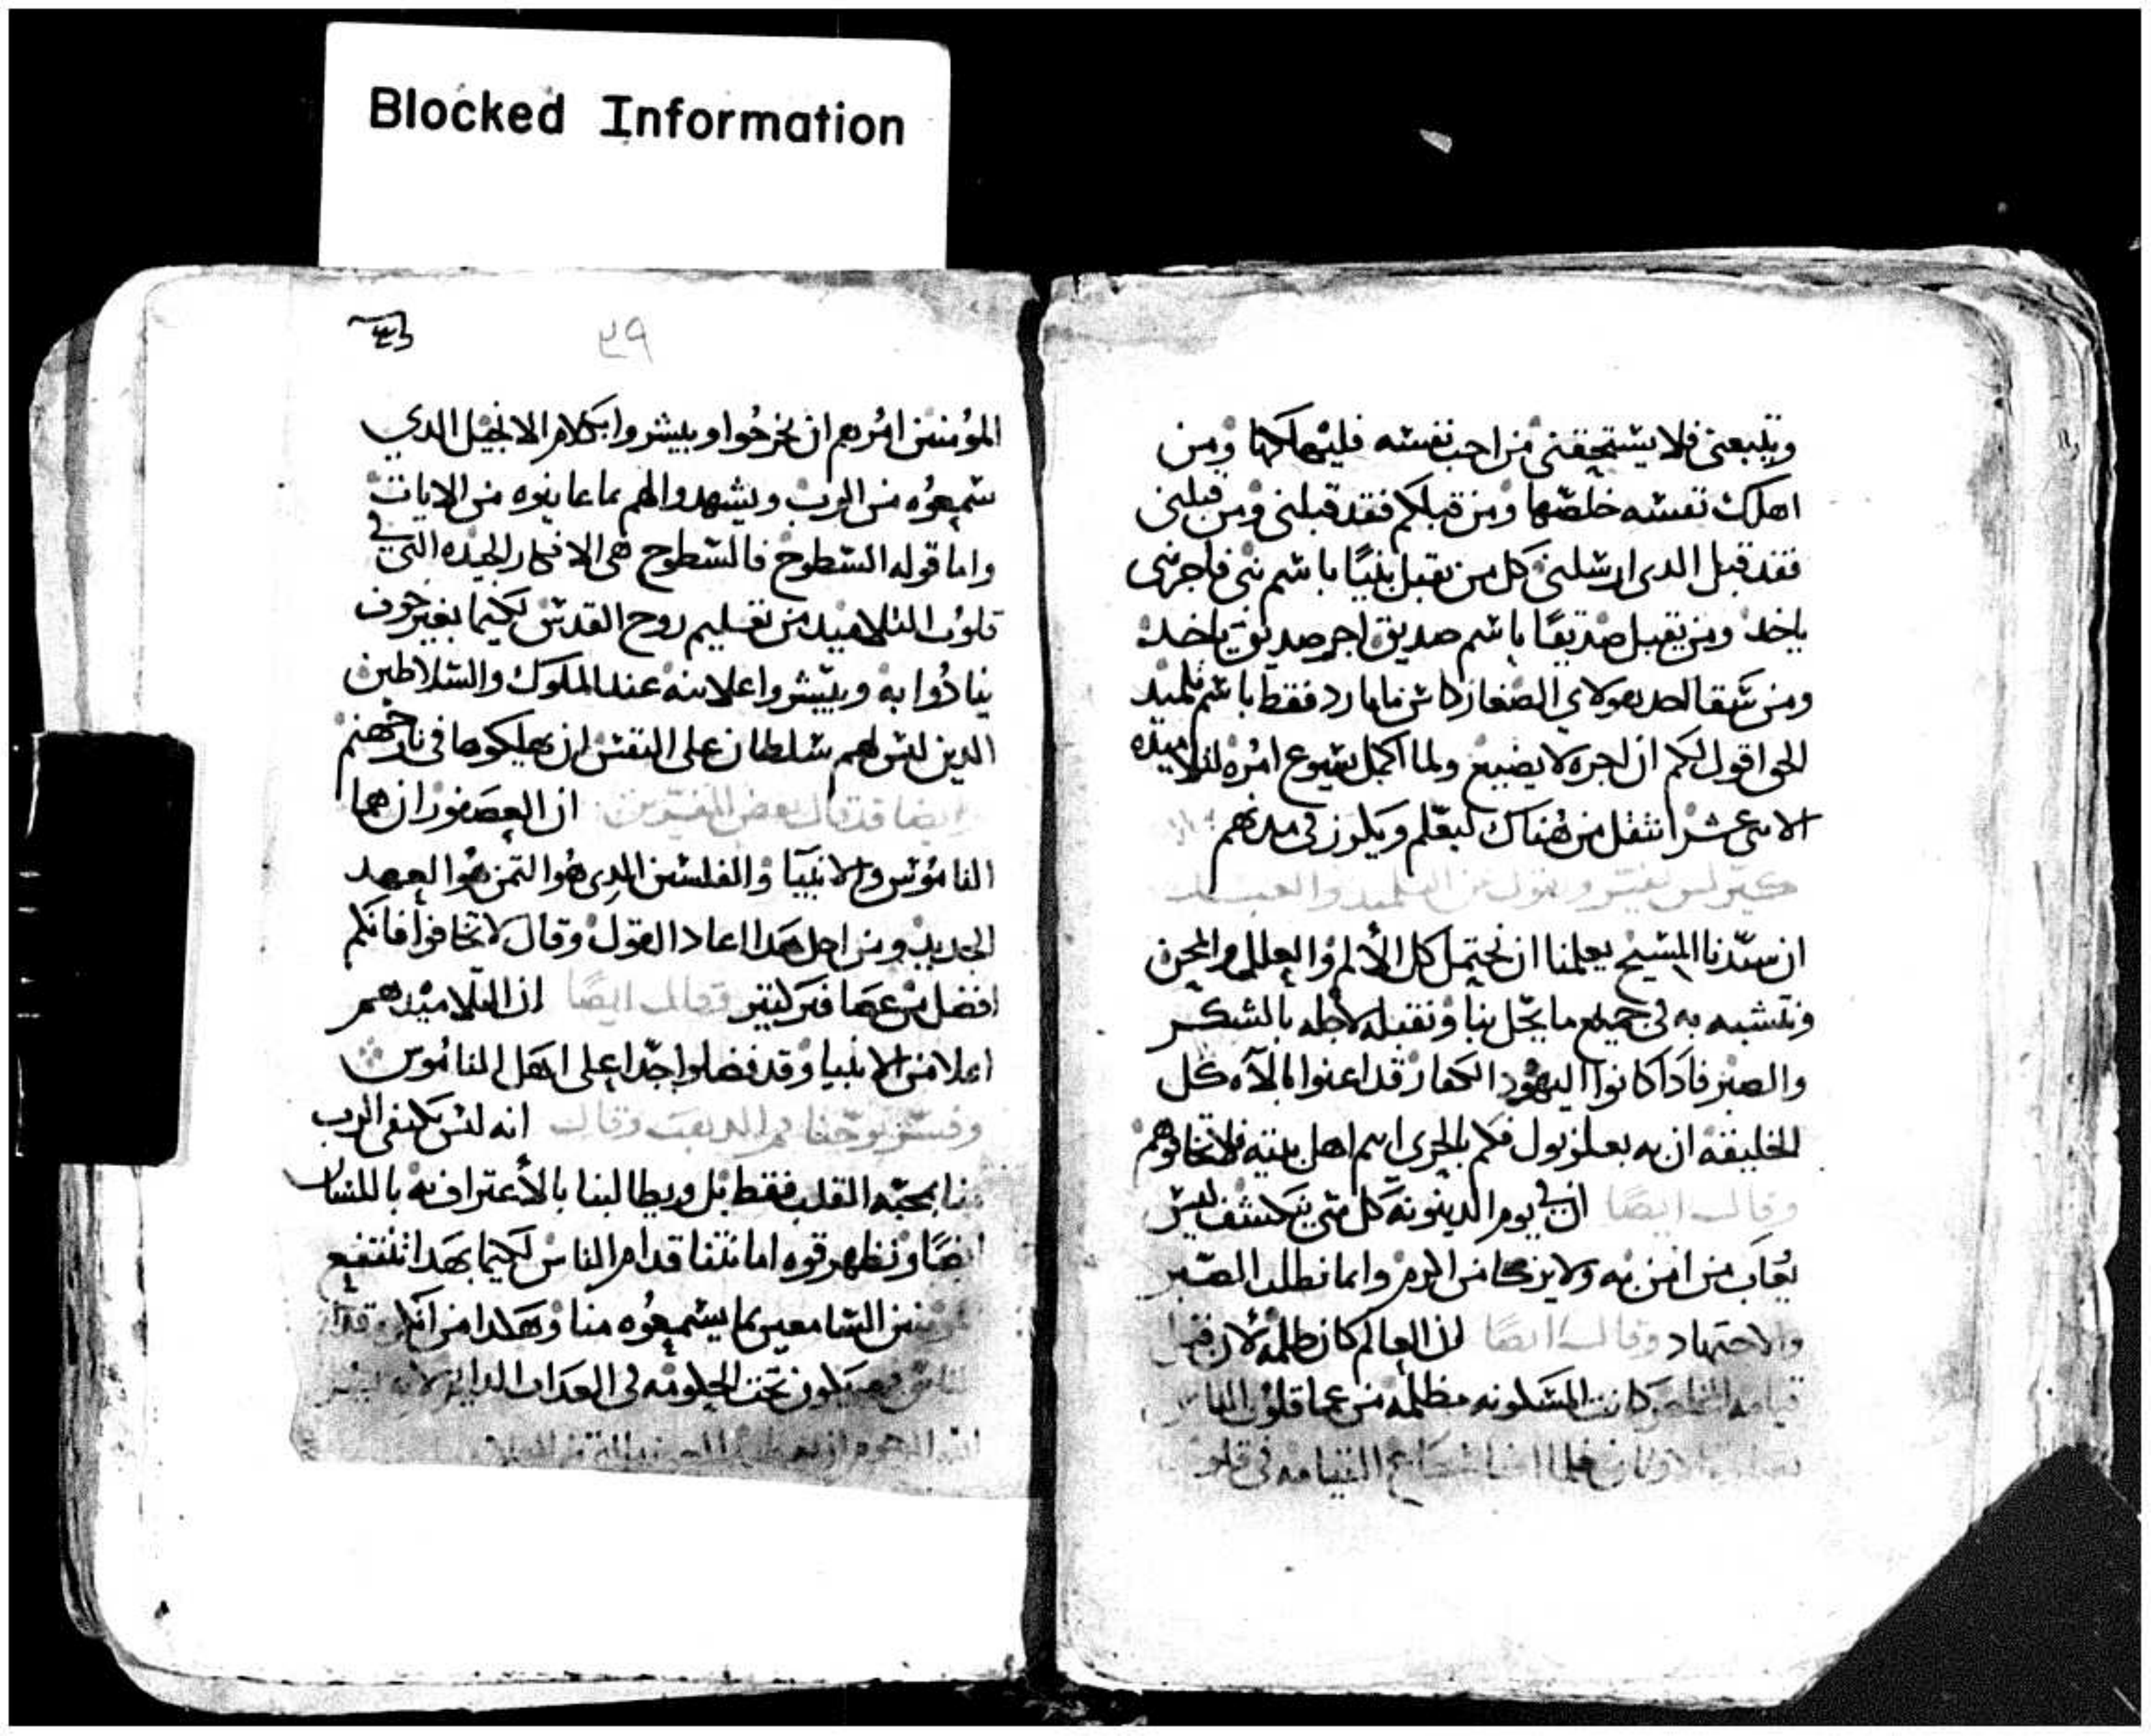 Blocked Information
ويتبعني فلا يستحقني من احب نفسه فليهلكها ومن
اهلك نفسه خلصها ومن قبلكم فقد قبلني ومن قبلني
فقد قبل الدي ارسلني كل من يقبل نبيًا باسم نبي فاجر نبي
ياخد ومن يقبل صديقًا باسم صديق اجر صديق ياخد
ومن سقا احد هولاي الصغار كاس ما بارد فقط باسم تلميد
الحق اقول لكم ان اجره لا يضيع ولما اكمل يسوع امره لتلاميده
الاثني عشر انتقل من هناك ليعلم ويكرز في مدنهم
كيرلس يفسر ويقول عن التلميد والعبد
ان سيّدنا المسيح يعلمنا ان نحتمل كل الألم والعلل والمحن
ونتشبه به في جميع ما يحّل بنا ونقبله لأجله بالشكر
والصبر فادا كانوا اليهود الكفار قد اعنوا بالآه كل
الخليقه ان به بعلزبول فكم بالحري انتم اهل بيته فلا تخافوهم
وقال ايضًا ان في يوم الدينونه كل شي ينكشف ليس
يُعاب من امن به ولا يزكا من الرمز وانما نطلب الصبر
والاجتهاد وقال ايضًا ان العالم كان ظلمه لان قبل
قيامه المخلص كانت المسكونه مظلمه من عما قلوب الناس
الاوثان فلما اضا شعاع القيامه في
٣٩
المؤمنين امرهم ان يخرجوا ويبشروا بكلام الانجيل الدي
سمعوه من الرب ويشهدوا لهم بما عاينوه من الايات
واما قوله السطوح فالسطوح هي الافكار الجيده التي في
قلوب التلاميد من تعليم روح القدس لكيما بغير خوف
ينادُوا به ويبّشروا علانيه عند الملوك والسلاطين
الدين ليس لهم سلطان على النفس ان يهلكوها في نار جهنم
ايضا قد قال بعض المفسرين ان العصفوران هما
الناموس والانبيا والفلسين الدي هو الثمن هو العهد
الجديد ومن اجل هدا اعاد القول وقال لا تخافوا فانكم
افضل من عصافير كتير وقال ايضًا ان التلاميد هم
اعلا من الانبيا وقد فضلوا جدًا على اهل الناموس
وفسّر يوحنا فم الدهب وقال انه ليس يكتفي الرب
منا بمحبّه القلب فقط بل ويطالبنا بالأعتراف به باللسان
ايضًا ونظهر قوه امانتنا قدام الناس لكيما بهدا ننتفع
السامعين بما يسمعُوه منا وهكدا من انكر قدام
الناس فسيكون تحت الحكومه في العداب الدايم لانه ليس